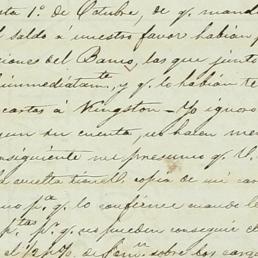 ta 1º de Octubre, de q. mand
l saldo a nuestro favor habian p
iones del Banco, las que junto
immediatamte, y q. lo habian te
cartas á Kingston - Yo ignoro
gun su cuenta, no hacen me
nsiguiente no presumo q. V.
vuelta copia de mi car
mo pª q. lo confirme mande l
ptas pª q. nos pueden conseguir e
el 1/2 p% de Comon sobre los cargo